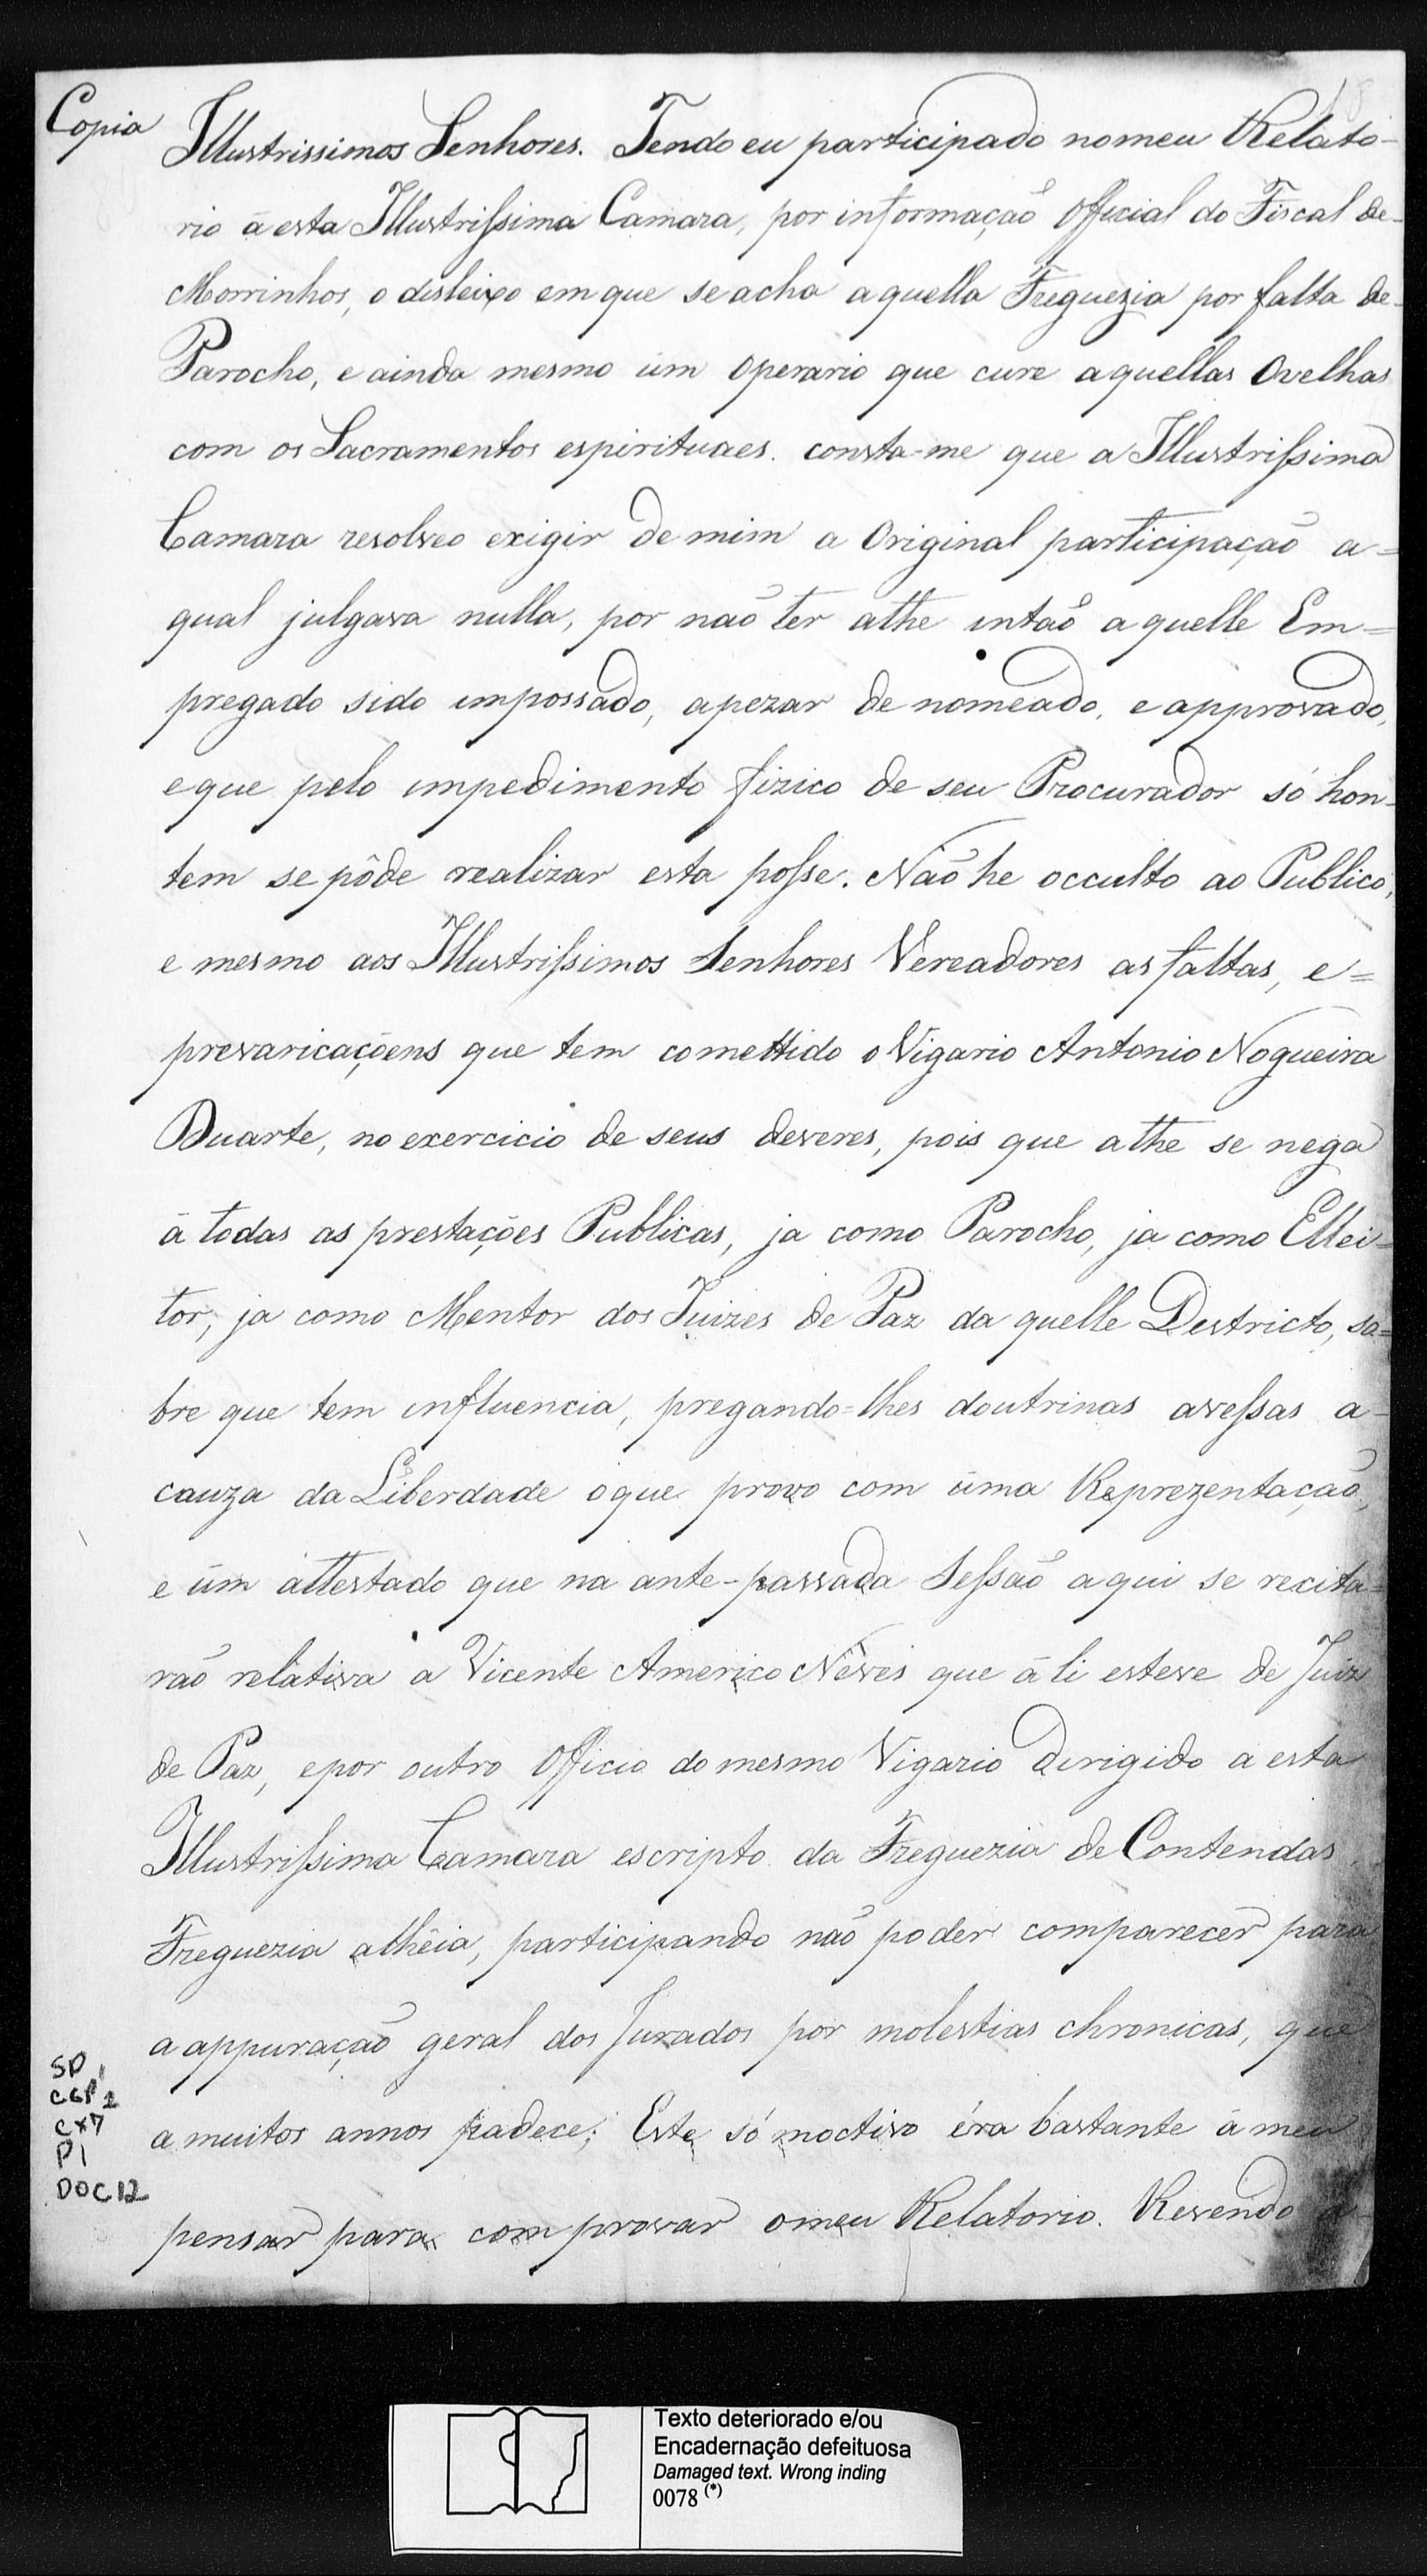 Copia
Illustrissimos Senhores. Tendo eu participado no meu Relato-
rio á esta Illustrissima Camara, por informação official do Fiscal de-
Morrinhos, o disleixo em que se acha aquella Freguezia por falta de-
Parocho, e ainda mesmo um Operario que cure aquellas Ovelhas
com os Sacramentos espirituaes. consta-me que a Illustrissima
Camara resolveo exigir de mim a Original participação a=
qual julgava nulla, por não ter athe intão aquelle Em=
pregado sido impossado, apezar de nomeado, e approvado,
e que pelo impedimento fizico de seu Procurador só hon-
tem se pôde realizar esta posse. Não he occulto ao Publico,
e mesmo aos Illustrissimos Senhores Vereadores as faltas, e=
prevaricaçõens que tem comettido o Vigario Antonio Nogueira
Duarte, no exercicio de seus deveres, pois que athe se nega
á todas as prestações Publicas, ja como Parocho, ja como Ellei=
tor, ja como Mentor dos Juizes de Paz da quelle Destricto, so=
bre que tem influencia, pregando=lhes doutrinas avessas a-
cauza da Liberdade o que provo com uma Reprezentação,
e úm attestado que na ante-passada Sessão aqui se recita=
rão relativa a Vicente Americo Néves que áli esteve de Juiz
de Paz, e por outro Officio do mesmo Vigario dirigido a esta
Illustrissima Camara escripto da Freguezia de Contendas
Freguezia alhêia, participando não poder comparecer para
a appuração geral dos Jurados por molestias chronicas, que
a muitos annos padece; Este só moctivo éra bastante á meu
pensar para comprovar o meu Relatorio. Revendo a
SP 1
CGP 2
CX7
P1
DOC 12
Texto deteriorado e/ou
Encadernação defeituosa
Damaged text. Wrong inding
0078 (*)